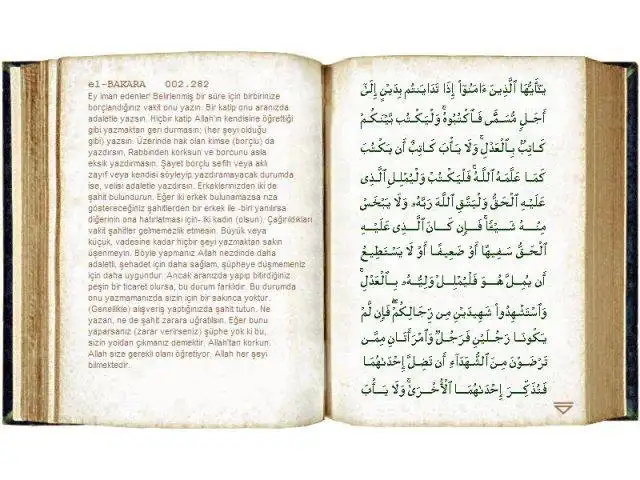 el-BAKARA 002.282
Ey iman edenler! Belirlenmiş bir süre için birbirinize
borçlandığınız vakit onu yazın. Bir katip onu aranızda
adaletle yazsın. Hiçbir katip Allah'ın kendisine öğrettiği
gibi yazmaktan geri durmasın; (her şeyi olduğu
gibi) yazsın. Üzerinde hak olan kimse (borçlu) da
yazdırsın, Rabbinden korksun ve borcunu asla
eksik yazdırmasın. Şayet borçlu sefih veya aklı
zayıf veya kendisi söyleyip yazdıramayacak durumda
ise, velisi adaletle yazdırsın. Erkeklerinizden iki de
şahit bulundurun. Eğer iki erkek bulunamazsa rıza
göstereceğiniz şahitlerden bir erkek ile -biri yanılırsa
diğerinin ona hatırlatması için- iki kadın (olsun). Çağırıldıkları
vakit şahitler gelmemezlik etmesin. Büyük veya
küçük, vadesine kadar hiçbir şeyi yazmaktan sakın
üşenmeyin. Böyle yapmanız Allah nezdinde daha
adaletli, şehadet için daha sağlam, şüpheye düşmemeniz
için daha uygundur. Ancak aranızda yapıp bitirdiğiniz
peşin bir ticaret olursa, bu durum farklıdır. Bu durumda
onu yazmamanızda sizin için bir sakınca yoktur.
(Genellikle) alışveriş yaptığınızda şahit tutun. Ne
yazan, ne de şahit zarara uğratılsın. Eğer bunu
yaparsanız (zarar verirseniz) şüphe yok ki bu,
sizin yoldan çıkmanız demektir. Allah'tan korkun.
Allah size gerekli olanı öğretiyor. Allah her şeyi
bilmektedir.
يَٰٓأَيُّهَا ٱلَّذِينَ ءَامَنُوٓا۟ إِذَا تَدَايَنتُم بِدَيْنٍ إِلَىٰٓ
أَجَلٍ مُّسَمًّى فَٱكْتُبُوهُ ۚ وَلْيَكْتُب بَّيْنَكُمْ
كَاتِبٌۢ بِٱلْعَدْلِ ۚ وَلَا يَأْبَ كَاتِبٌ أَن يَكْتُبَ
كَمَا عَلَّمَهُ ٱللَّهُ ۚ فَلْيَكْتُبْ وَلْيُمْلِلِ ٱلَّذِى
عَلَيْهِ ٱلْحَقُّ وَلْيَتَّقِ ٱللَّهَ رَبَّهُۥ وَلَا يَبْخَسْ
مِنْهُ شَيْـًٔا ۚ فَإِن كَانَ ٱلَّذِى عَلَيْهِ
ٱلْحَقُّ سَفِيهًا أَوْ ضَعِيفًا أَوْ لَا يَسْتَطِيعُ
أَن يُمِلَّ هُوَ فَلْيُمْلِلْ وَلِيُّهُۥ بِٱلْعَدْلِ ۚ
وَٱسْتَشْهِدُوا۟ شَهِيدَيْنِ مِن رِّجَالِكُمْ ۖ فَإِن لَّمْ
يَكُونَا رَجُلَيْنِ فَرَجُلٌ وَٱمْرَأَتَانِ مِمَّن
تَرْضَوْنَ مِنَ ٱلشُّهَدَآءِ أَن تَضِلَّ إِحْدَىٰهُمَا
فَتُذَكِّرَ إِحْدَىٰهُمَا ٱلْأُخْرَىٰ ۚ وَلَا يَأْبَ